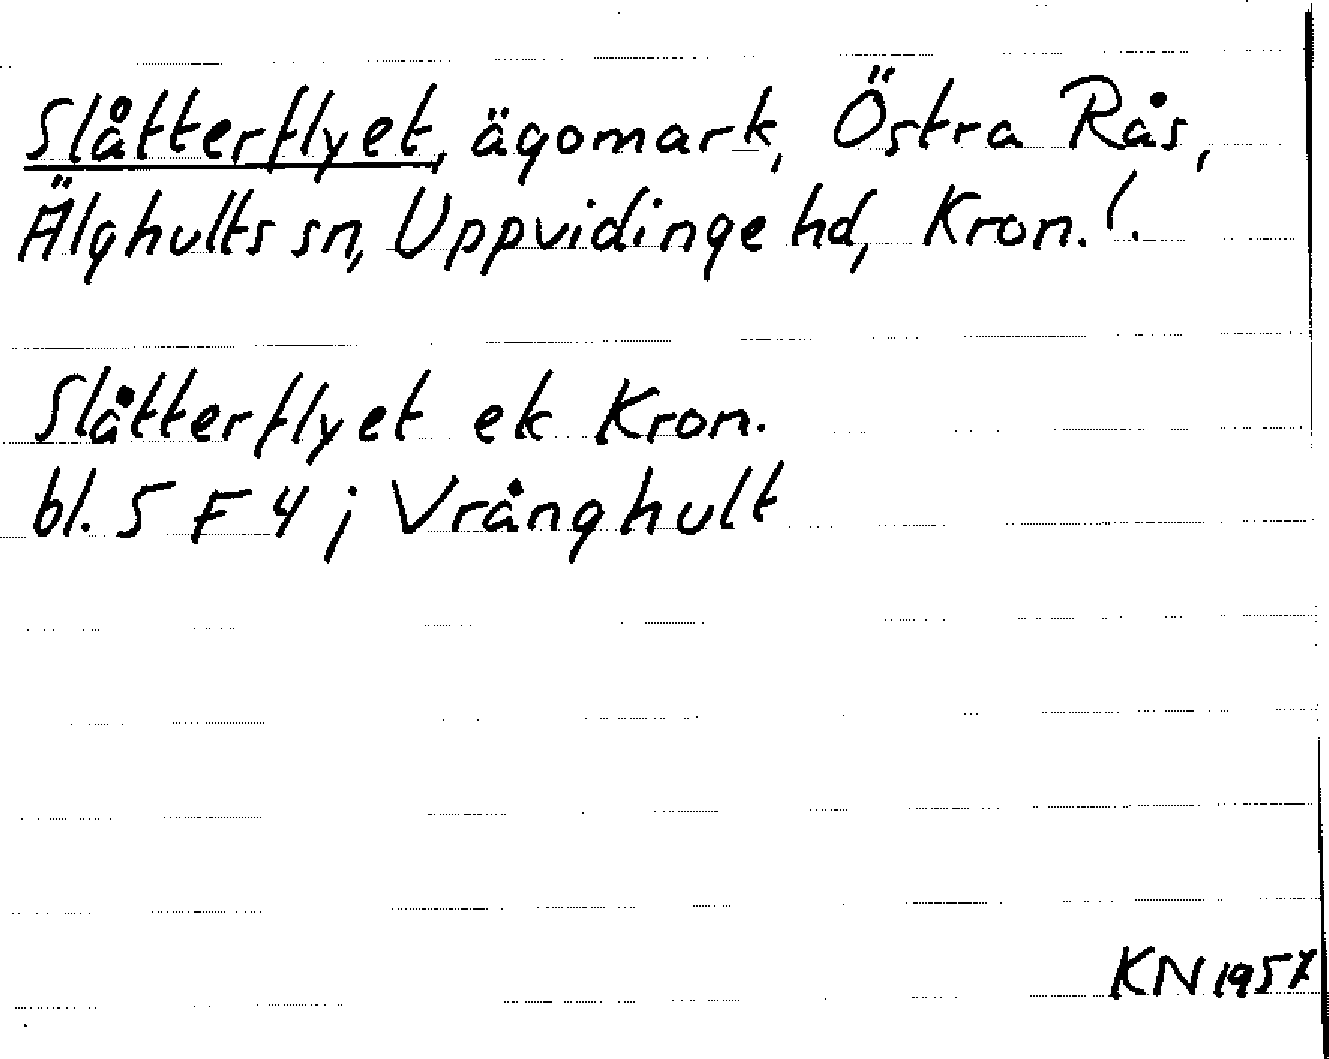 Slåtterflyet, ägomark, Östra Rås,
Älghults sn, Uppvidinge hd, Kron. l.
Slåtterflyet ek Kron.
bl. 5 F 4 ; Vrånghult
KN 1957